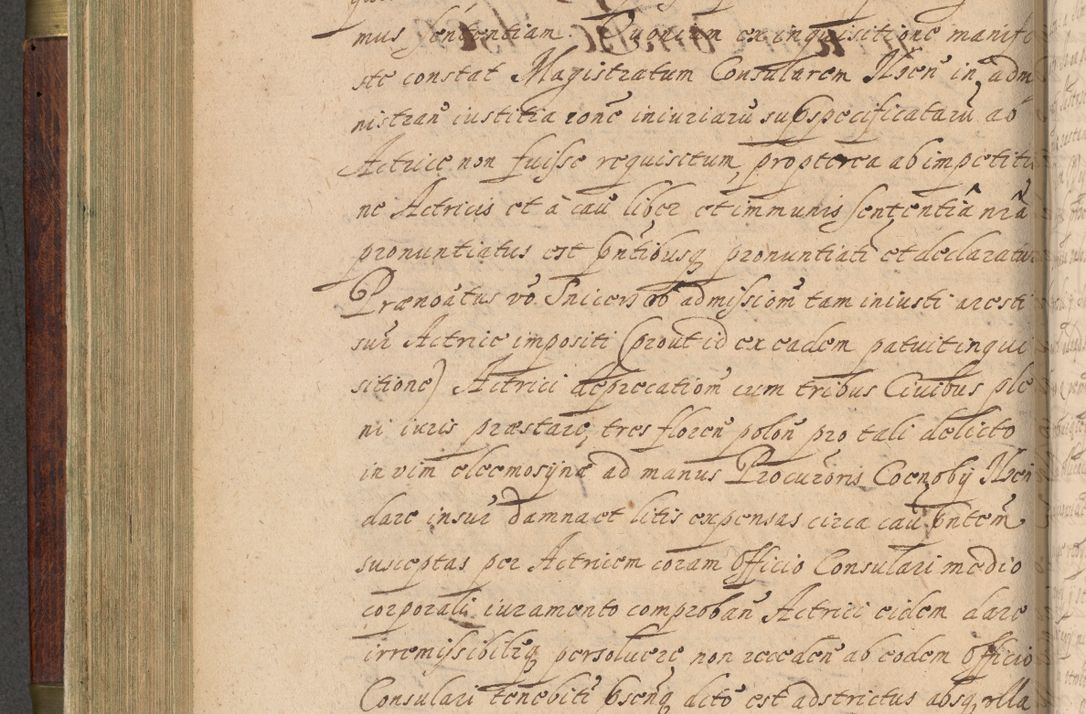 mus sententiam. Quoniam ex inquisitione manife
ste constat Magistratum Consularem Ilsen in adm
nistran̄ iustitia rōne iniuriarū subspecificatarū ab
Actrice non fuisse requisitum, propterea ab impetitio
ne Actricis et à caū liber et immunis sententiâ nrâ
pronuntiatus est pn̄tibusq pronuntiatr̄ et declaratur
Prænōatus vō Snicers ob admissiom̄ tam iniusti aresti
sur̄ Actrice impositi (prout id ex eadem patuit inqui
sitione) Actrici deprecatiom̄ cum tribus Ciuibus ple
ni iuris præstare, tres floren̄ polon̄ pro tali delicto
in vim eleemosynæ ad manus Procurōris Coenobij Ilsen
dare insur̄ damna et litis expensas circa caū pn̄tem
susceptas per Actricem coram Officio Consulari medio
corporali iuramento comproban̄ Actrici eidem dare
irremissibilrq persoluere non receden̄ ab eodem Officio
Consulari tenebitr̄ psenq dcto est adstrictus absq vlla